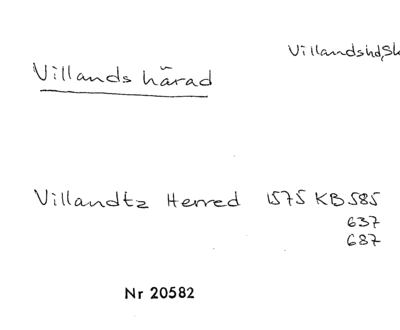 Villandshd, Sk
Villands härad
Villandtz Herred 1575 KB 585
637
687
Nr 20582